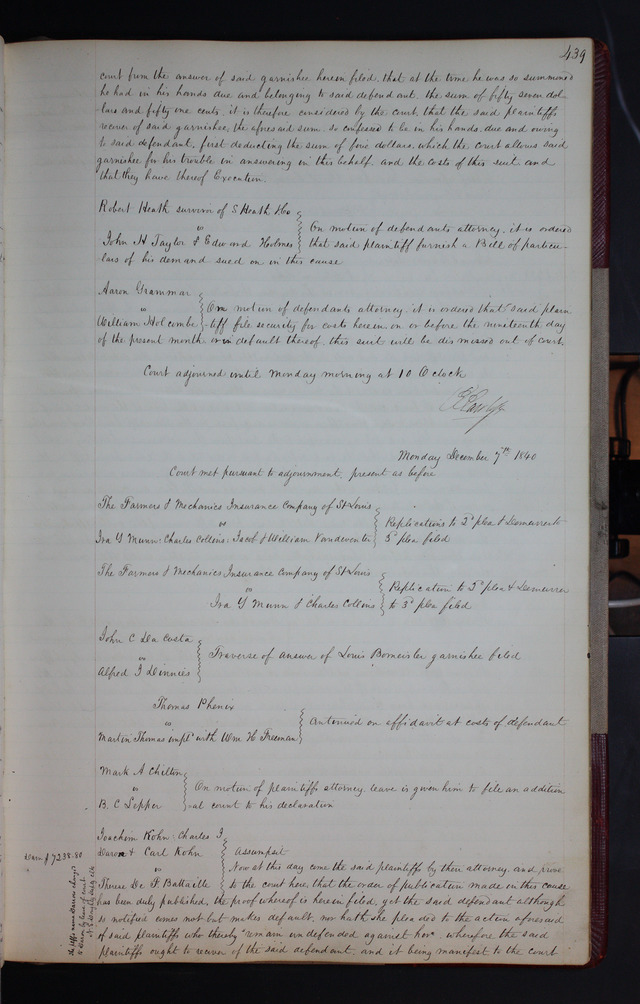 439
court from the answer of said garnishee herein filed, that at the time he was so summoned
he had in his hands due and belonging to said defendant the sum of fifty seven dol-
lars and fifty one cents, it is therefore considered by the court, that the said plaintiffs
recover of said garnishee, the aforesaid sum so confessed to be in his hands due and owing
to said defendant, first deducting the sum of five dollars, which the court allows said
garnishee for his trouble in answering in this behalf and the costs of this suit and
that they have thereof Execution.
Robert Heath survivor of S Heath & Co
vs
John H Taylor & Edward Holmes
On motion of defendants attorney, it is ordered
that said plaintiff furnish a Bill of particu-
lars of his demand sued on in this cause
Aaron Grammar
vs
William Holcombe
On motion of defendants attorney it is ordered that said plain
-tiff file security for costs herein on or before the nineteenth day
of the present month or in default thereof, this suit will be dismissed out of court
Court adjourned until Monday morning at 10 O clock
Monday December 7th 1840
Court met pursuant to adjournment, present as before
The Farmers & Mechanics Insurance Company of St Louis
vs
Ira Y Munn, Charles Collins, Jacob & William Vandeventer
Replications to 2d plea & Demurrer to
3d plea filed
The Farmers & Mechanics Insurance Company of St Louis
vs
Ira Y Munn & Charles Collins
Replication to 2d plea & Demurrer
to 3d plea filed
John C Da Costa
vs
Alfred J Dinnies
Traverse of answer of Louis Bomeisler garnishee filed
Thomas Phenix
vs
Martin Thomas impld with Wm H Freeman
Continued on affidavit at costs of defendant
Mark A Chilton
vs
B. C Sepper
On motion of plaintiffs attorney leave is given him to file an addition
-al count to his declaration
Joachim Kohn, Charles J
Daron & Carl Kohn
vs
Therese De F Battaille
Assumpsit
dam $7238.80
Now at this day come the said plaintiffs by their attorney, and prove
to the court here, that the order of publication made in this cause
has been duly published, the proof whereof is herein filed, yet the said defendant although
so notified comes not but makes default, nor hath she pleaded to the action aforesaid
of said plaintiffs who thereby remain undefended against her, wherefore the said
plaintiffs ought to recover of the said defendant, and it being manifest to the court